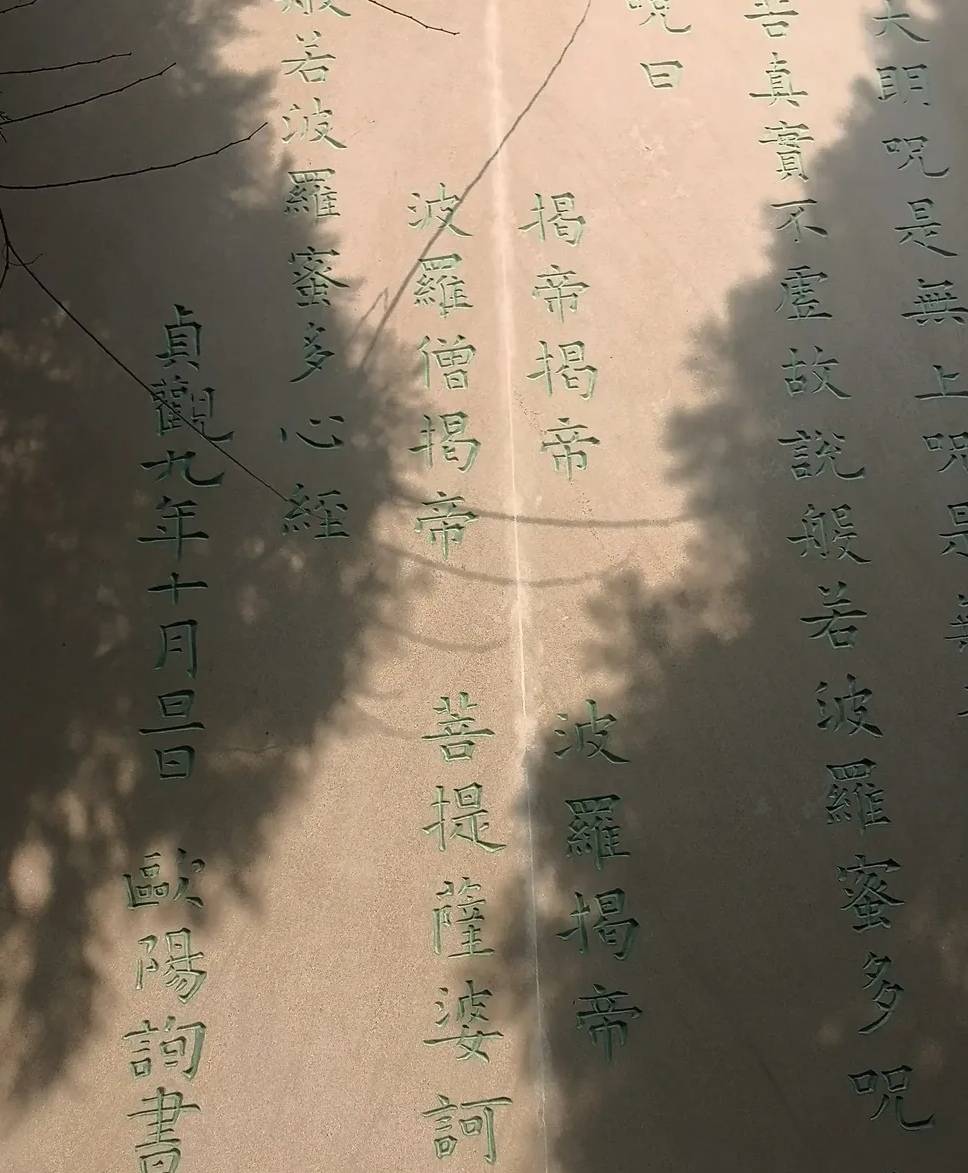 大明呪是無上呪是無
苦真實不虛故說般若波羅蜜多呪
呪曰
揭帝揭帝 波羅揭帝
波羅僧揭帝 菩提薩婆訶
般若波羅蜜多心經
貞觀九年十月旦日 歐陽詢書